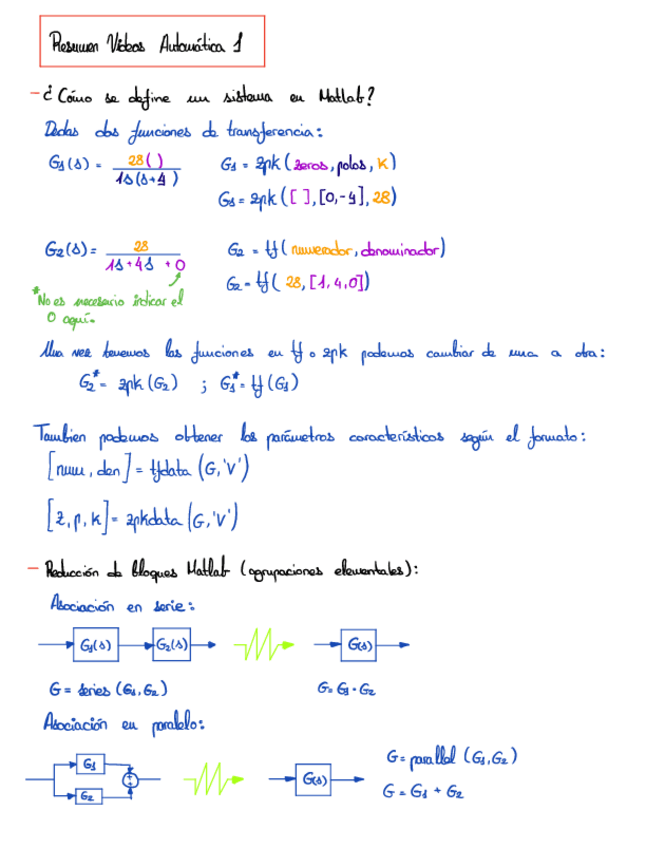 Resumen Videos Automática 1
- ¿Cómo se define un sistema en Matlab?
Dadas dos funciones de transferencia:
G1(s) = 28( ) / 1s(s+4) G1 = zpk(zeros, polos, K)
G1 = zpk([ ], [0,-4], 28)
G2(s) = 28 / 1s+4s+0 G2 = tf(numerador, denominador)
G2 = tf(28, [1,4,0])
*No es necesario indicar el
0 aquí.
Una vez tenemos las funciones en tf o zpk podemos cambiar de una a otra:
G2* = zpk(G2) ; G1* = tf(G1)
Tambien podemos obtener los parámetros característicos según el formato:
[num, den] = tfdata(G,'V')
[z, p, k] = zpkdata(G,'V')
- Reducción de bloques Matlab (agrupaciones elementales):
Asociación en serie:
G1(s) G2(s) G(s)
G = series (G1, G2) G = G1 · G2
Asociación en paralelo:
G1 G2 + + G(s)
G = parallel (G1, G2)
G = G1 + G2